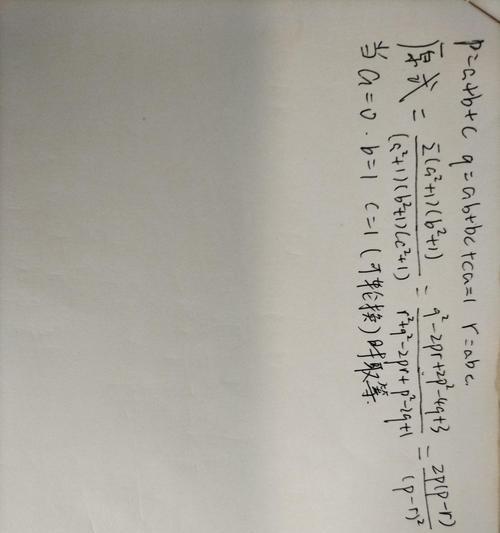 p=a+b+c q=ab+bc+ca=1 r=abc.
原式 = Σ(a²+1)(b²+1) / (a²+1)(b²+1)(c²+1) = q²-2pr+2p²-4q+3 / r²+q²-2pr+p²-2q+1 = 2p(p-r) / (p-r)²
当 a=0. b=1 c=1 (可轮换) 时取等.